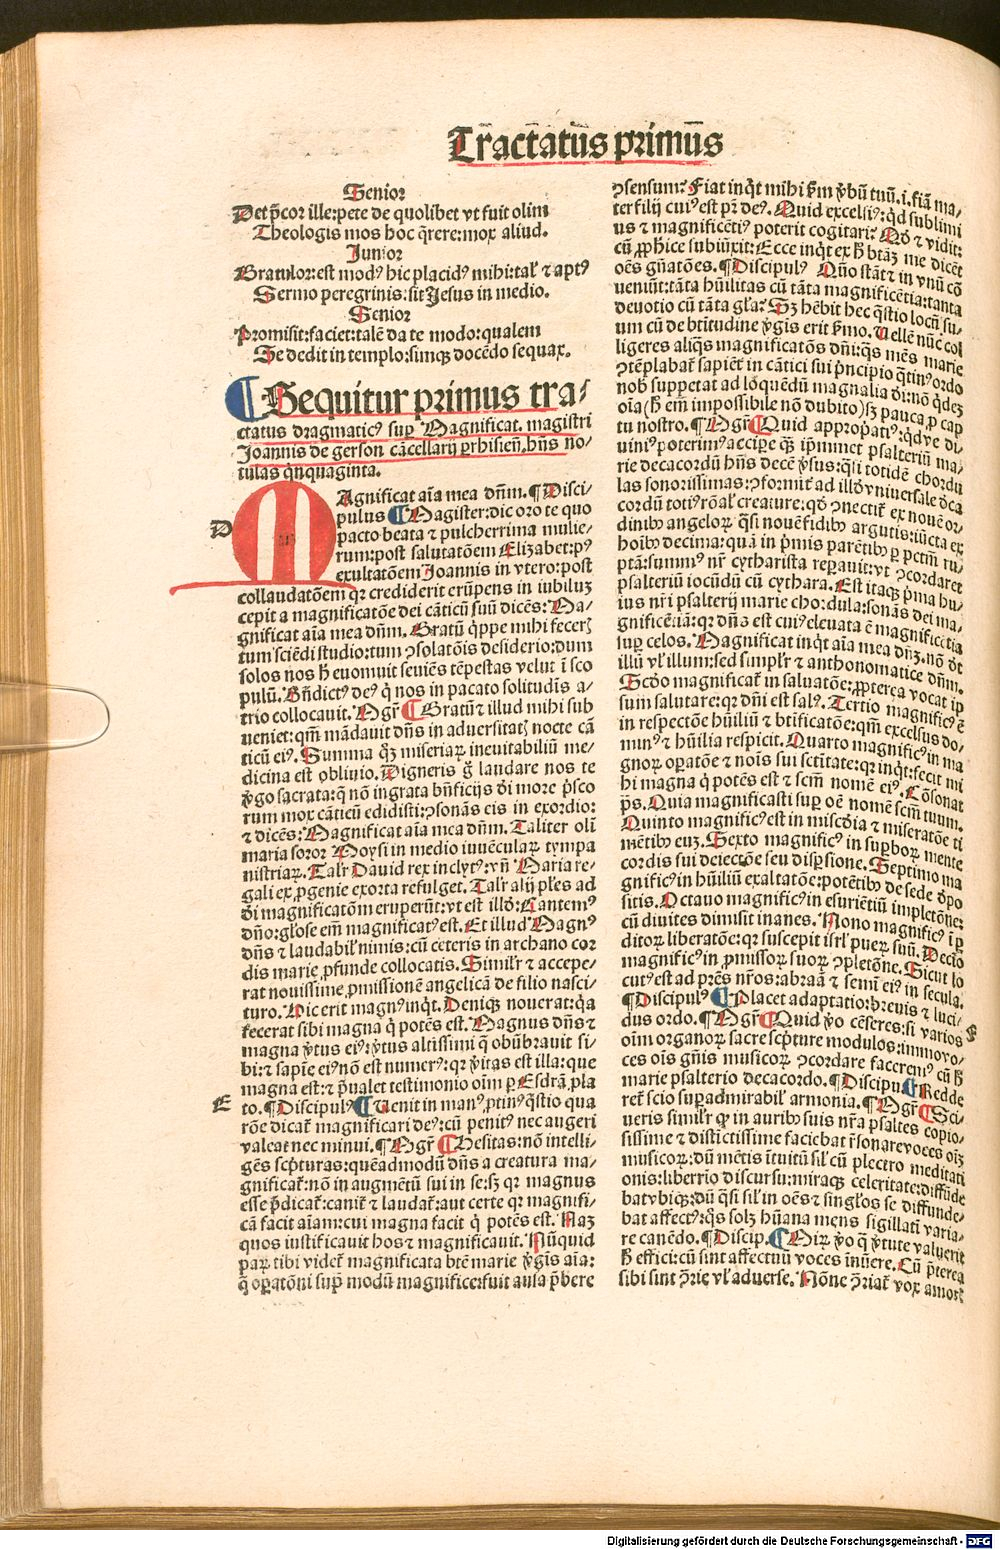 Tr̄actatūs primūs
Senior
Det p̄cor ille: pete de quolibet vt fuit olim
Theologis mos hoc q̄rere: mox aliud.
Junior
Gratulor: est modꝰ hic placidꝰ mihi: tal' ⁊ aptꝰ
Sermo peregrinis: sit Jesus in medio.
Senior
Promisit: faciet: talē da te modo: qualem
Se dedit in templo: simꝗ docēdo sequax.
¶ Sequitur primus tra-
ctatus dragmaticꝰ sup̲ Magnificat. magistri
Joannis de gerson cācellarij p̲rhisieñ. hñs no-
tulas qn̄quaginta.
D
MAgnificat aīa mea dn̄m. ¶ Disci-
pulus ¶ Magister: dic oro te quo
pacto beata ⁊ pulcherrima mulie-
rum: post salutatōem Elizabet: pꝰ
exultatōem Joannis in vtero: post
collaudatōem qꝛ crediderit erūpens in iubiluꝫ
cepit a magnificatōe dei cāticū suū dicēs: Ma-
gnificat aīa mea dn̄m. Gratū q̄ppe mihi feceris
tum sciēdi studio: tum ꝯsolatōis desiderio: dum
solos nos h̄ euomuit seuiēs tēpestas velut ī sco
pulū. Bn̄dictꝰ deꝰ q̇ nos in pacato solitudīs a-
trio collocauit. Mgr̄ ¶ Gratū ⁊ illud mihi sub
ueniet: qm̄ mādauit dn̄s in aduersitatꝭ nocte cā
ticū eiꝰ. Summa qꝫ miseriaꝝ ineuitabiliū me-
dicina est obliuio. Digneris g̊ laudare nos te
v̄go sacrata: q̄ nō ingrata bn̄ficijs di more p̄sco
rum mox cāticū edidisti: ꝯsonās eis in exordio:
⁊ dicēs: Magnificat aīa mea dn̄m. Taliter olī
maria soror Moysi in medio iuuēculaꝝ tympa
nistriaꝝ. Tal'r Dauid rex inclytꝰ: vn̄ Maria re-
gali ex ꝓgenie exorta refulget. Tal'r alij pl'es ad
di magnificatōm eruperūt: vt est illd': Cantemꝰ
dn̄o: gl'ose em̄ magnificatꝰ est. Et illud Magnꝰ
dn̄s ⁊ laudabil' nimis: cū ceteris in archano cor
dis marie ꝓfunde collocatis. Simil'r ⁊ accepe-
rat nouissime ꝓmissionē angelicā de filio nasci-
turo. Hic erit magnꝰ inq̄t. Deniqꝫ nouerat: q̄a
fecerat sibi magna q̇ potēs est. Magnus dn̄s ⁊
magna v̄tus eiꝰ: v̄tus altissimi q̄ obūbrauit si-
bi: ⁊ sapīe eiꝰ nō est numerꝰ: qꝛ v̄itas est illa: que
magna est: ⁊ p̄ualet testimonio oīm p̲ Esdrā ꝓla
E
to. ¶ Discipulꝰ ¶ Uenit in manꝰ ꝓtinꝰ q̄stio qua
rōe dicat' magnificari deꝰ: cū penitꝰ nec augeri
valeat nec minui. ¶ Mgr̄ ¶ Hesitas: nō intelli-
gēs scp̄turas: quēadmodū dn̄s a creatura ma-
gnificat': nō in augmētū sui in se: sꝫ qꝛ magnus
esse p̄dicat': canit' ⁊ laudat': aut certe qꝛ magnifi-
cā facit aīam: cui magna facit q̇ potēs est. Naꝫ
quos iustificauit hos ⁊ magnificauit. Nūquid
paꝝ tibi videt' magnificata btē marie v̄gīs aīa:
q̄ op̲atōni sup̲ modū magnifice: fuit ausa p̄bere
ꝯsensum? Fiat inq̄t mihi ẜm v̄bū tuū. i. fiā ma-
ter filij cuiꝰ est pr̄ deꝰ. Quid excelsiꝰ: qd' sublimi
us ⁊ magnificētiꝰ poterit cogitari? Qd' ⁊ vidit:
cū ꝓphice subiūxit: Ecce inq̄t ex h̄ btāꝫ me dicēt
oēs gn̄atōes. ¶ Discipulꝰ Qn̄o stāt ⁊ in vnū cō
ueniūt: tāta hūilitas cū tāta magnificētia: tanta
deuotio cū tāta gl'a? Sꝫ hēbit hec q̄stio locū su-
um cū de btitudine v̄gīs erit ẜmo. Uellē nūc col
ligeres aliq̄s magnificatōs dn̄i: q̄s mēs marie
ꝯtēplabat' sapiēt' in cātici sui p̄ncipio q̄tinꝰ ordo
nob̄ suppetat ad lōquēdū magnalia di: nō qdeꝫ
oīa (h̄ em̄ impossibile nō dubito) sꝫ pauca ꝓ cap
tu nostro. ¶ Mgr̄ ¶ Quid appropiatꝰ: qd've di-
uiniꝰ poterimꝰ accip̲e qꝫ ip̄mmet psalteriū ma-
rie decacordū hn̄s decē v̄sus: q̄si totidē chordu
las sonorissimas: ꝯformit' ad illd' vniuersale deca
cordū totiꝰ rōal' creature: qd' ꝯnectit' ex nouē or-
dinibꝰ angeloꝝ q̄si nouē fidibꝰ argutis: iūcta ex
hoībꝰ decima: quā in p̄mis parētibꝰ p̲ pctm̄ ru-
ptā: summꝰ nr̄ cytharista rep̲auit: vt ꝯcordaret
psalteriū iocūdū cū cythara. Est itaqꝫ p̄ma hu-
ius nr̄i psalterij marie chordula: sonās dei ma-
gnificētiā: qꝛ dn̄s est cuiꝰ eleuata ē magnificētia
sup̲ celos. Magnificat inq̄t aīa mea dn̄ꝫ. nō dt
illū vl' illum: sed simpl'r ⁊ anthonomatice dn̄m.
Scd'o magnificat' in saluatōe: ꝓpterea vocat ip
sum salutare: qꝛ dn̄i est salꝰ. Tertio magnificꝰ ē
in respectōe hūiliū ⁊ btificatōe: qm̄ excelsus do-
minꝰ ⁊ hūilia respicit. Quarto magnificꝰ in ma
gnoꝝ op̲atōe ⁊ noīs sui sctitate: qꝛ inq̄t: fecit mi
hi magna q̇ potēs est ⁊ scm̄ nomē eiꝰ. Cōsonat
ip̄s. Quia magnificasti sup̲ oē nomē scm̄ tuum.
Quinto magnificꝰ est in miscd'ia ⁊ miseratōe ti
mētibꝰ euꝫ. Sexto magnificꝰ in sup̲boꝝ mente
cordis sui deiectōe seu disp̲sione. Septimo ma
gnificꝰ in hūiliū exaltatōe: potētibꝰ de sede d'po
sitis. Octauo magnificꝰ in esuriētiū impletōne:
cū diuites dimisit inanes. Nono magnificꝰ ī p̲
ditoꝝ liberatōe: qꝛ suscepit isrl' pueꝝ suū. Decīo
magnificꝰ in ꝓmissoꝝ suoꝝ ꝯpletōne. Sicut lo
cutꝰ est ad p̄res nr̄os: abraā ⁊ semī eiꝰ in secula.
¶ Discipulꝰ ¶ Placet adaptatio: breuis ⁊ luci-
dus ordo. ¶ Mgr̄ ¶ Quid v̄o cēseres: si varios
F
oīm organoꝝ sacre scp̄ture modulos: immo vo-
ces oīs gn̄is musicoꝝ ꝯcordare faceremꝰ cū h̄
marie psalterio decacordo. ¶ Discipu ¶ Redde
ret' scio sup̲admirabil' armonia. ¶ Mgr̄ ¶ Sci-
ueris simil'r qꝛ in auribꝰ suis nr̄a psaltes copio-
sissime ⁊ distictissime faciebat r̄sonare voces oīꝫ
musicoꝝ: dū mētis ītuitū sil' cū plectro meditati
onis: liberrio discursu: miraqꝫ celeritate: diffūde
bat vbiqꝫ: dū q̄si sil' in oēs ⁊ singl'os se diffunde-
bat affectꝰ: q̄s solꝫ hūana mens sigillatī varia-
re canēdo. ¶ Discip. ¶ Miꝝ v̄o q̄ v̄tute valuerit
h̄ effici: cū sint affectuū voces īnūere. Cū p̄terea
sibi sint ꝯrie vl' aduerse. Nōne ꝯriat' vox amoris
Digitalisierung gefördert durch die Deutsche Forschungsgemeinschaft - DFG